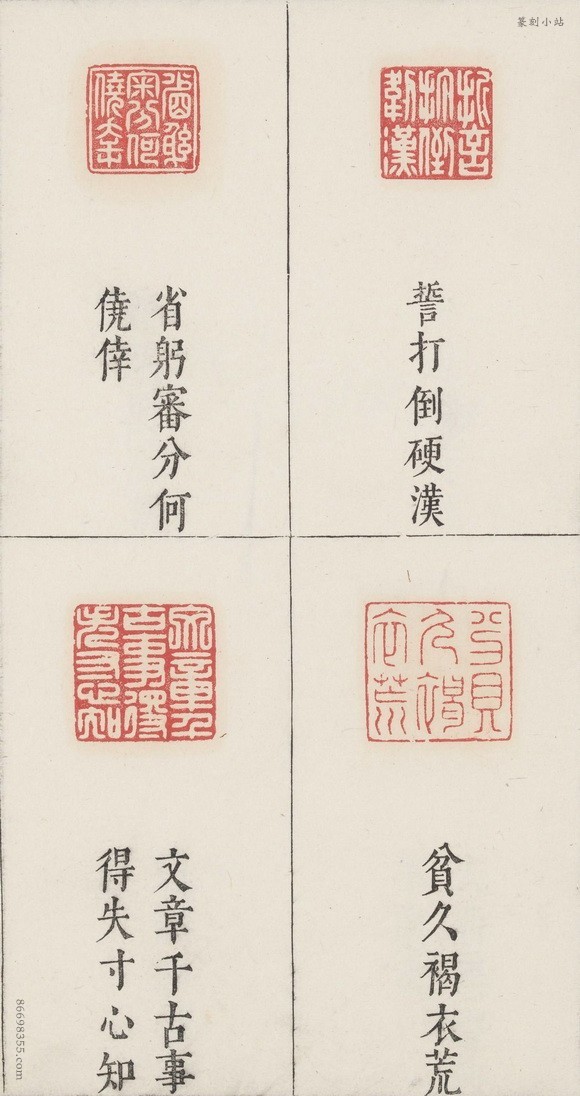 篆刻小站
誓打倒硬漢
省躬審分何
僥倖
貧久褐衣荒
文章千古事
得失寸心知
86698355.com